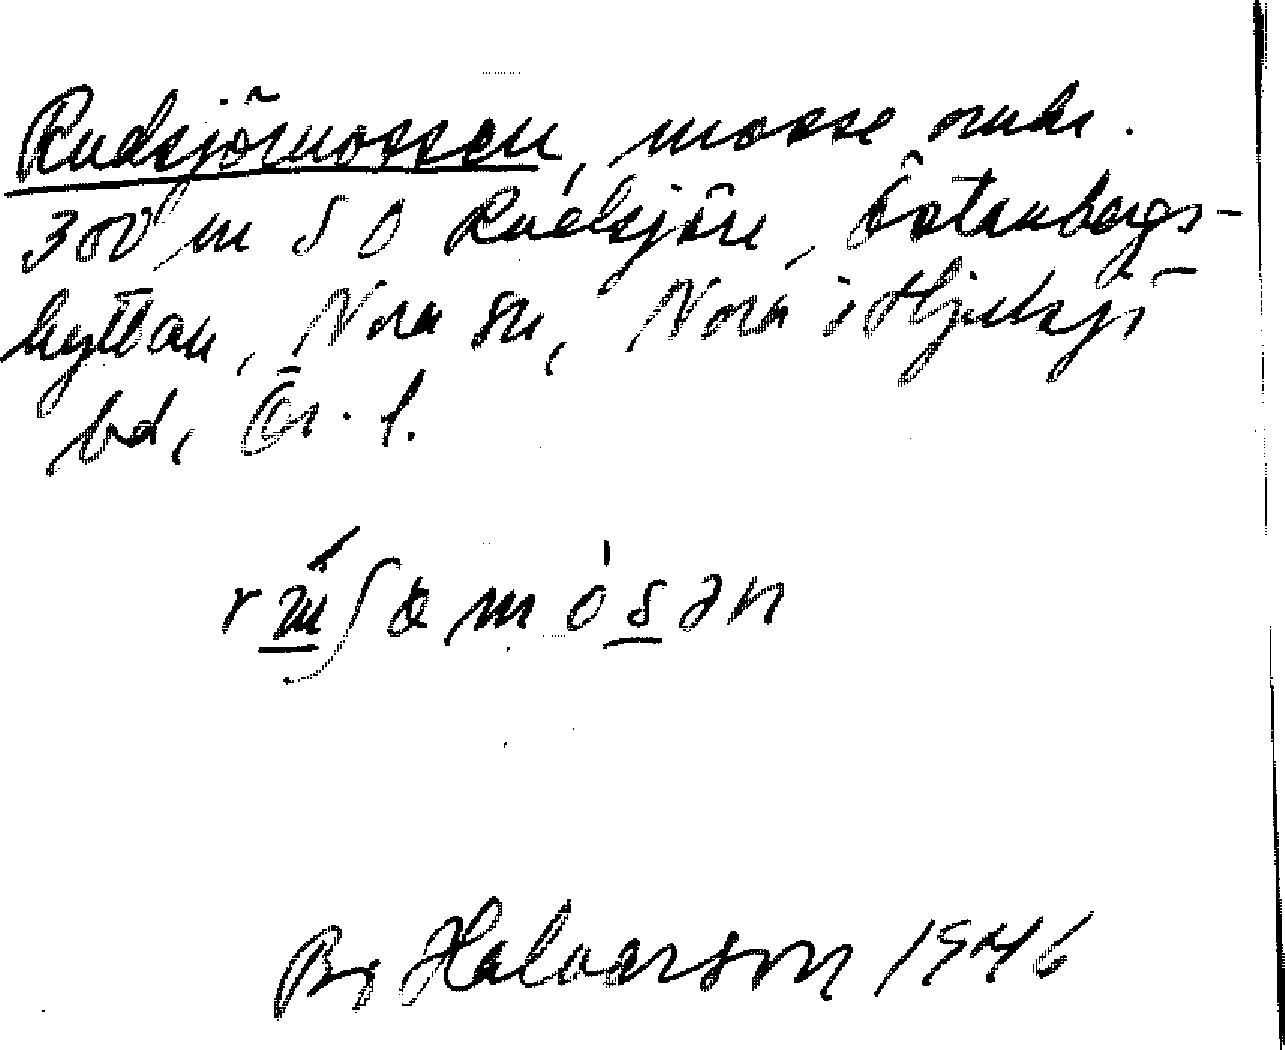 Rudsjömossen, mosse omkr.
300 m S O Rudsjön, Östanbergs-
hyttan, Nora sn, Nora o Hjulsjö
bd, Ör. l.
Bo Halvarson 1946